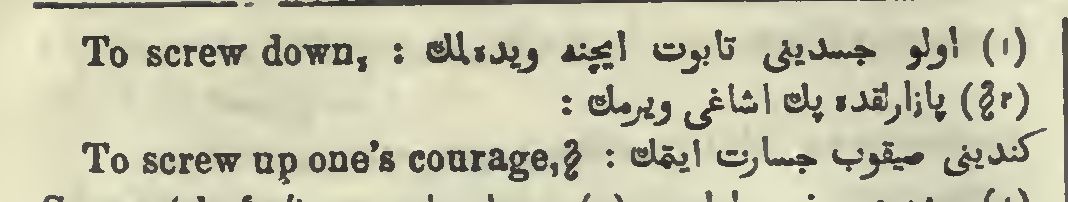 To screw down, : (١) اولو جسدينى تابوت ايچنه ويدەلمك
(٢ع) پازارلقده پك اشاغى ويرمك :
To screw up one's courage,ع : كندينى صيقوب جسارت ايتمك